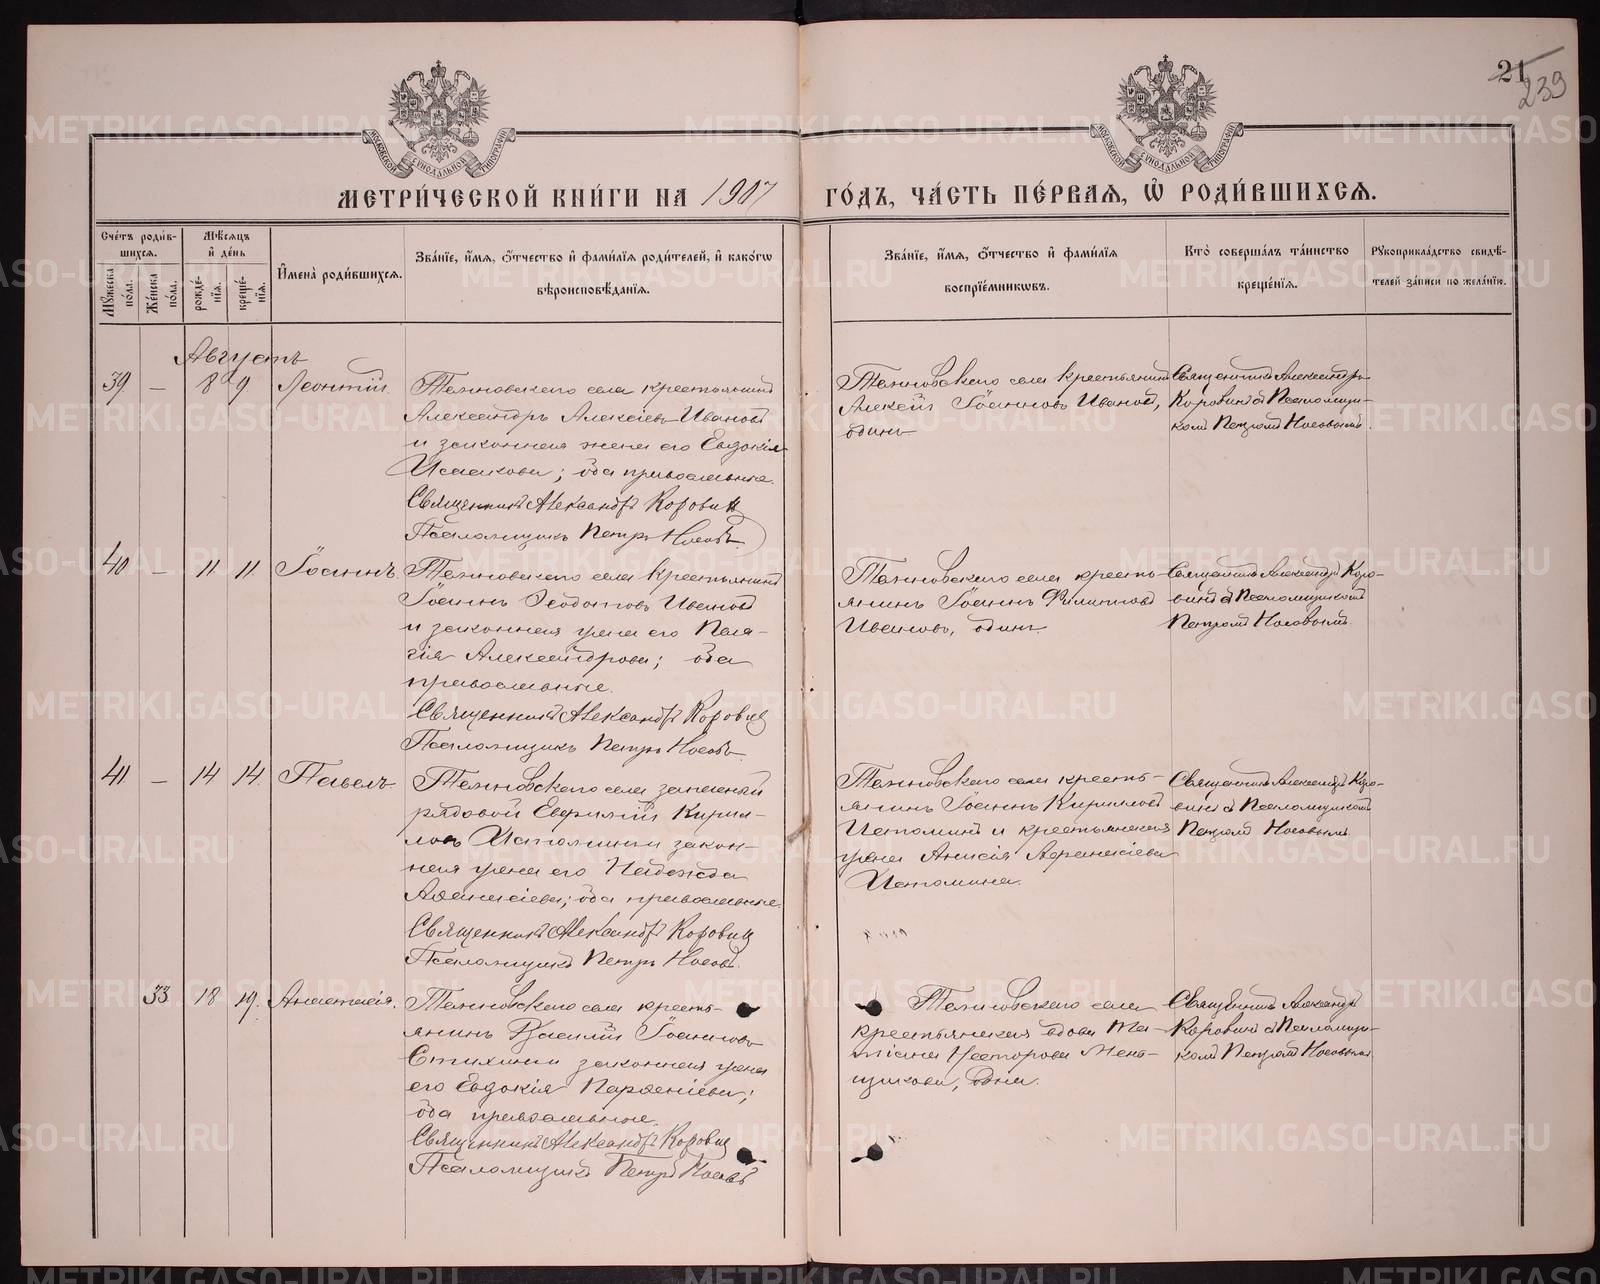 21
239
МЕТРИ́ЧЕСКОЙ КНИ́ГИ НА 1907
ГО́ДЪ, ЧА́СТЬ ПЕ́РВАЯ, Ѡ҆ РОДИ́ВШИХСЯ.
Сче́тъ роди́в-
шихся.
Мѹ́жеска по́ла.
Же́нска по́ла.
Мѣ́сяцъ
и҆ де́нь
рожде́-
нїя.
креще́-
нїя.
И҆мена̀ роди́вшихся.
Зва́нїе, и҆́мя, ѻ҆́тчество и҆ фами́лїя роди́телей, и҆ како́гѡ
вѣроисповѣ́данїя.
Зва́нїе, и҆́мя, ѻ҆́тчество и҆ фами́лїя
воспрїе́мникѡвъ.
Кто̀ соверша́лъ та́инство
креще́нїя.
Рѹкоприкла́дство свидѣ́-
телей за́писи по жела́нїю.
Августъ
39 — 8 9 Леонтій.
села крестьянинъ
Александръ Алексіевъ Ивановъ
и законная жена его Евдокія
Исаакова; оба православные.
Священникъ Александръ Коровин
Псаломщикъ Петръ Носовъ.
села крестьянинъ
Алексѣй Іоанновъ Ивановъ,
одинъ.
Священникъ Александръ
Коровинъ съ Псаломщи-
комъ Петромъ Носовымъ.
40 — 11 11. Іоаннъ.
села крестьянинъ
Іоаннъ Ѳеодотовъ Ивановъ
и законная жена его Пела-
гія Александрова; оба
православные.
Священникъ Александръ Коровин
Псаломщикъ Петръ Носовъ.
села кресть-
янинъ Іоаннъ Филипповъ
Ивановъ, одинъ.
Священникъ Александръ Коро-
винъ съ Псаломщикомъ
Петромъ Носовымъ.
41 — 14 14. Павелъ
села запасный
рядовой Кирил-
ловъ Истоминъ и закон-
ная жена его Надежда
Аѳанасіева; оба православные.
Священникъ Александръ Коровин
Псаломщикъ Петръ Носовъ.
села кресть-
янинъ Іоаннъ Кирилловъ
Истоминъ и крестьянская
жена Анисія Афанасіева
Истомина.
Священникъ Александръ Коро-
винъ съ Псаломщикомъ
Петромъ Носовымъ.
33 18 19. Анастасія.
села кресть-
янинъ Василій Іоанновъ
законная жена
его Евдокія Парѳеніева;
оба православные.
Священникъ Александръ Коровин
Псаломщикъ Петръ Носовъ
села
крестьянская вдова Та-
тіана Несторова
одна.
Священникъ Александръ
Коровинъ съ Псаломщи-
комъ Петромъ Носовымъ.
METRIKI.GASO-URAL.RU